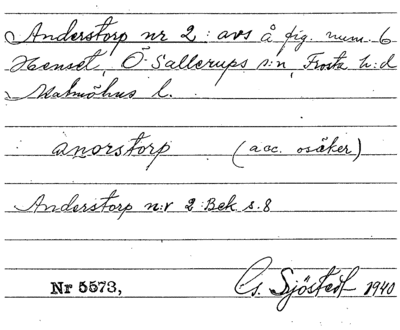 Anderstorp nr 2: avs å fig. num. 6
Henset, Ö. Sallerups s:n, Frosta h:d
Malmöhus l.
anorstorp (acc. osäker)
Anderstorp n:r 2 Bek s. 8
Nr 5573, Gs. Sjöstedt 1940